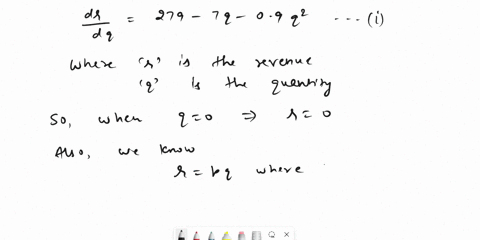 dr/dq = 279 - 7q - 0.9 q² ---- (i)
where 'r' is the revenue
'q' is the quantity
So, when q=0 ⇒ r=0
Also, we know
r = pq where